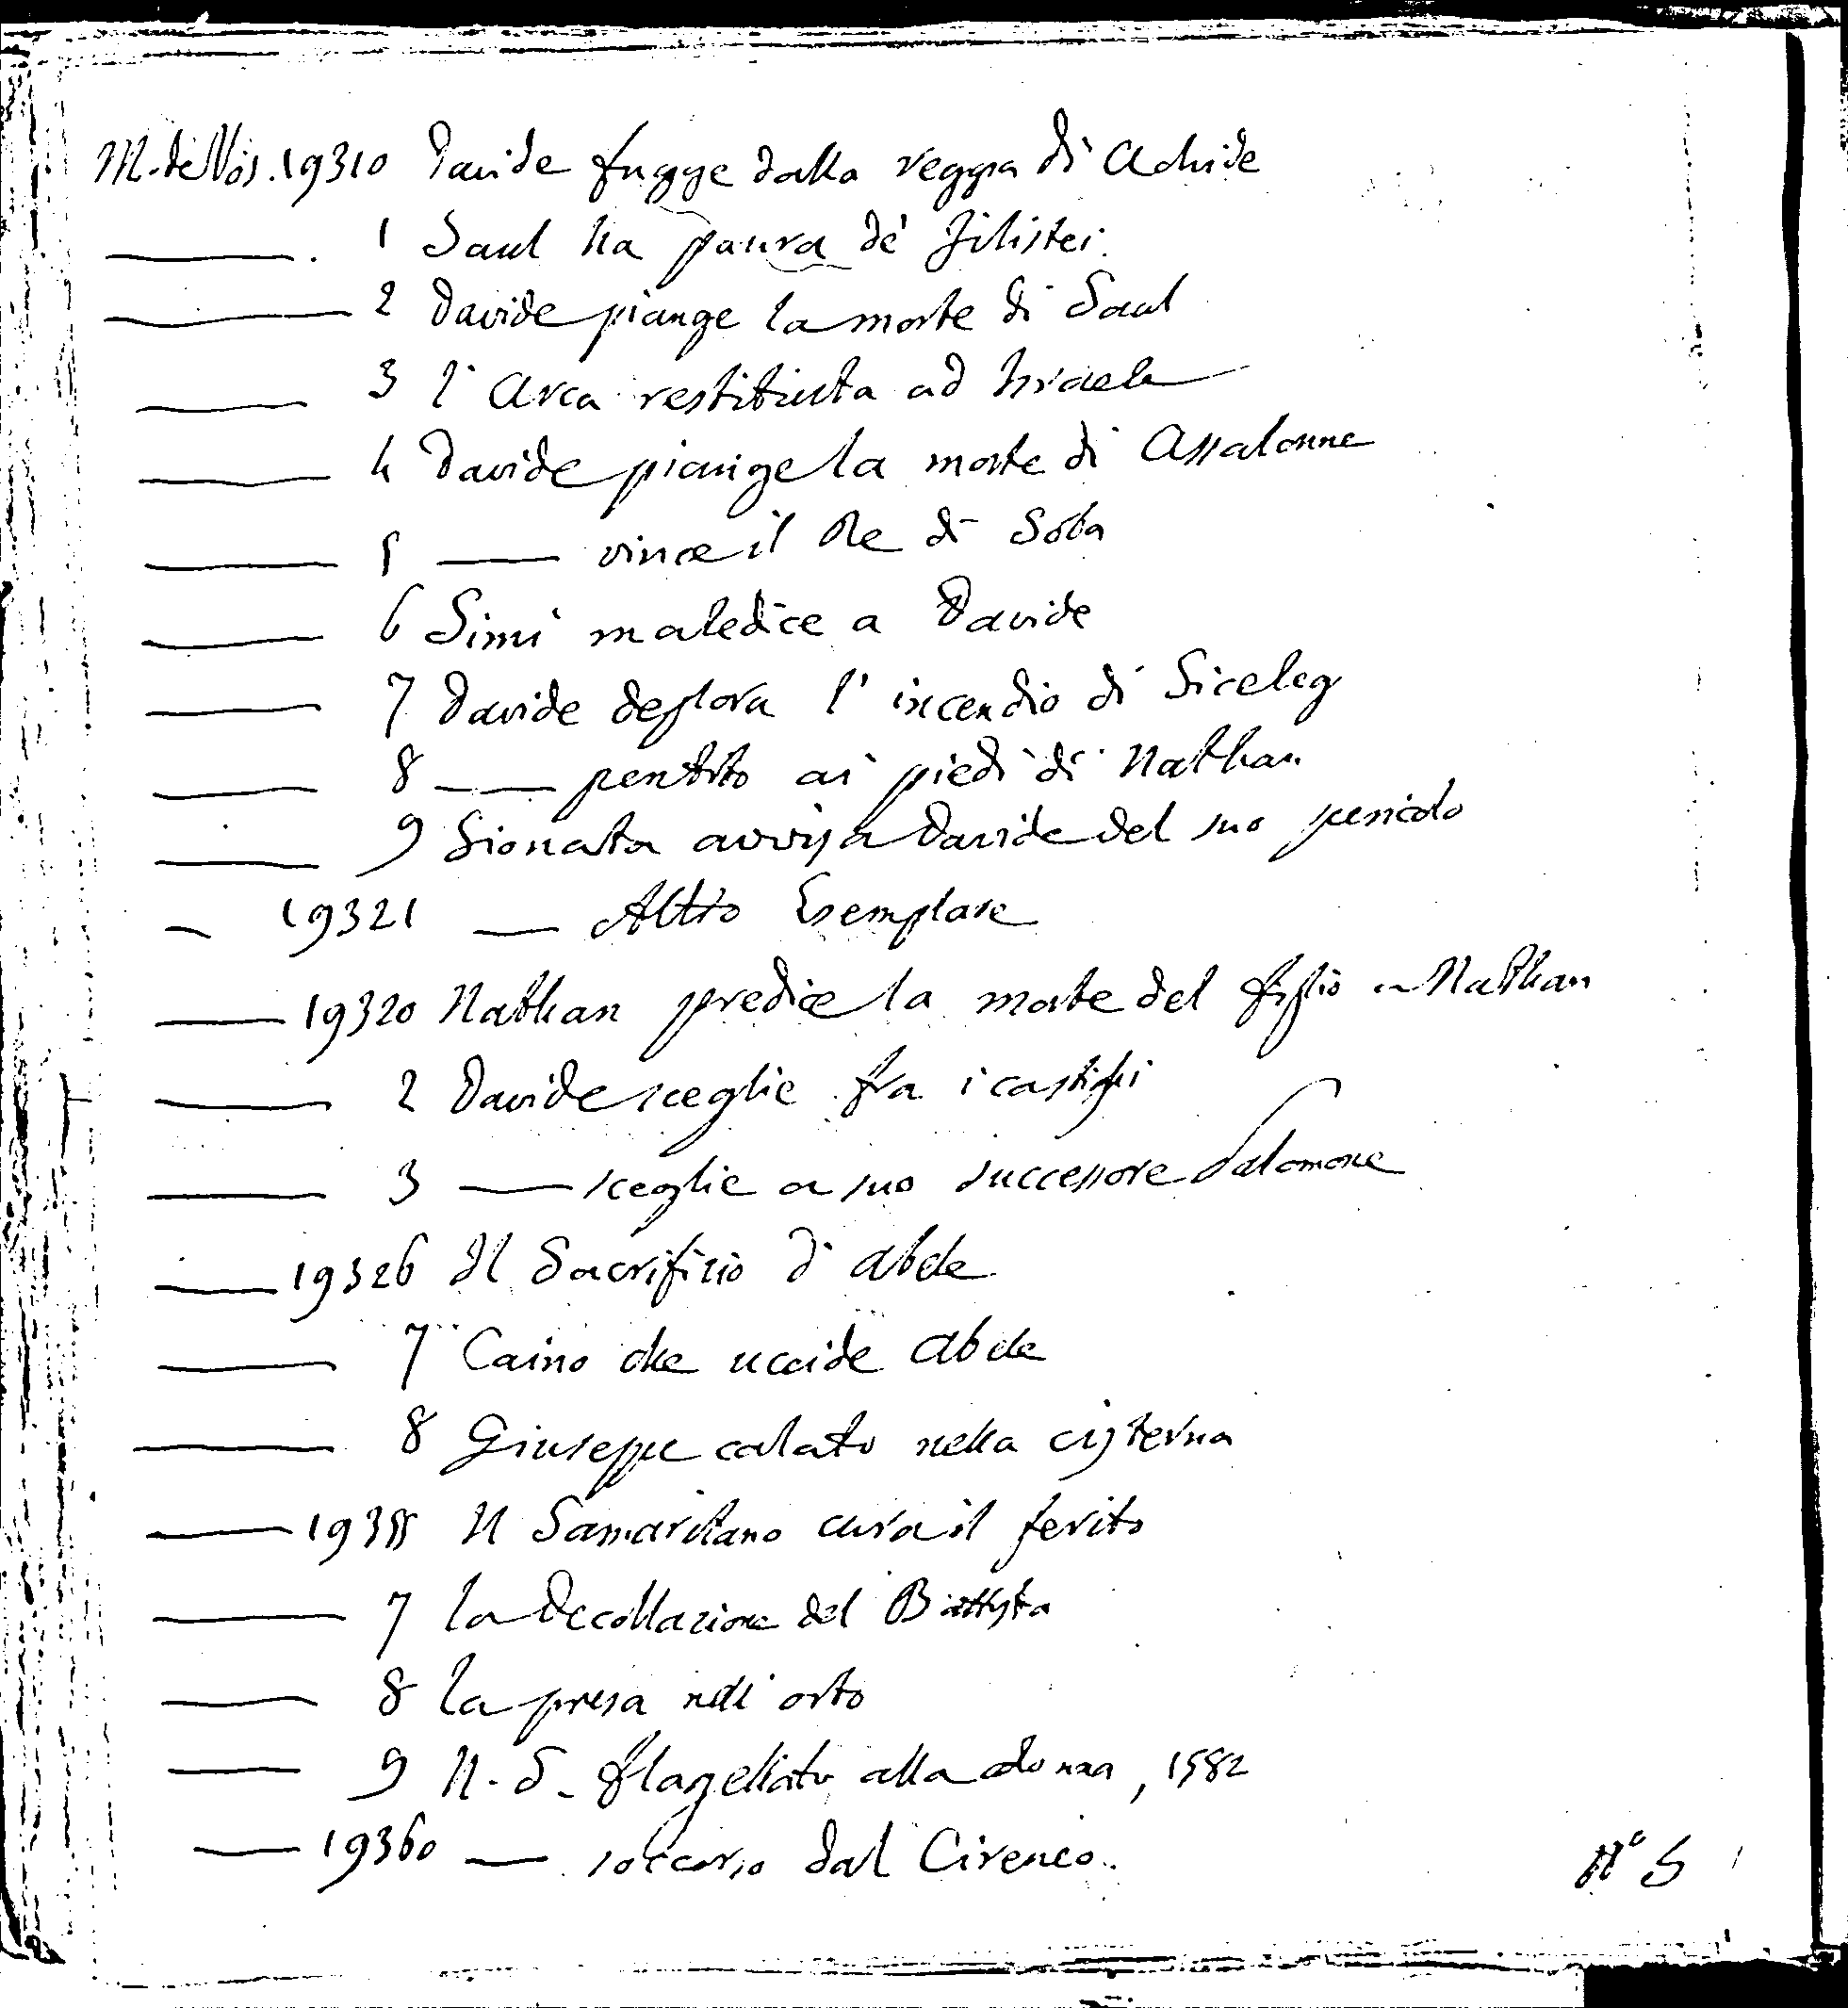 M. de Vos. 19310 Davide fugge dalla reggia di Achide
——. 1 Saul ha paura de' Filistei.
—— 2 Davide piange la morte di Saul
—— 3 l'Arca restituita ad Israele
—— 4 Davide piange la morte di Assalonne
—— 5 —— vince il Re di Soba
—— 6 Simi maledice a Davide
—— 7 Davide deplora l'incendio di Siceleg
—— 8 —— pentito ai piedi di Nathan
—— 9 Gionata avvisa Davide del suo pericolo
— 19321 — Altro Esemplare
—— 19320 Nathan predice la morte del figlio a Nathan
—— 2 Davide sceglie fra i castighi
—— 3 —— sceglie a suo successore Salomone
—— 19326 Il Sacrifizio d'Abele
—— 7 Caino che uccide Abele
—— 8 Giuseppe calato nella cisterna
—— 19355 Il Samaritano cura il ferito
—— 7 la Decollazione del Battista
—— 8 la presa nell'orto
—— 9 N. S. flagellato alla colonna, 1582
—— 19360 — soccorso dal Cireneo.
N° 5